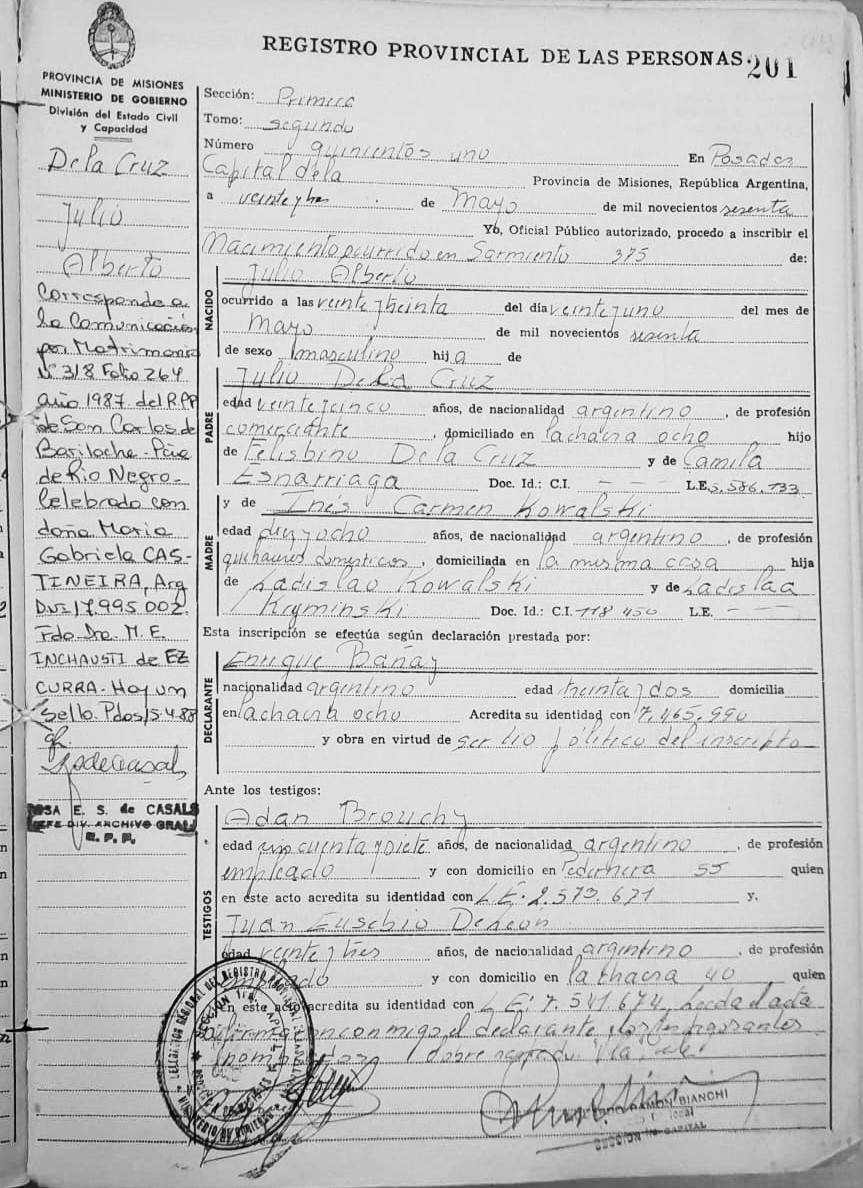 REGISTRO PROVINCIAL DE LAS PERSONAS
201
PROVINCIA DE MISIONES
MINISTERIO DE GOBIERNO
División del Estado Civil
y Capacidad
De la Cruz
Julio
Alberto
Corresponde a
la Comunicación
por Matrimonio
Nº 318 Folio 264
año 1987 del R.P.P
de San Carlos de
Bariloche - Pcia
de Rio Negro -
Celebrado con
doña Maria
Gabriela CAS-
TINEIRA, Arg
D.N.I 17.995 002.
Fdo Dra. M. E.
INCHAUSTI de EZ
CURRA - Hay un
Sello. Pdas 15-4-88
ROSA E. S. de CASALS
JEFE DIV. ARCHIVO GRAL
R. P. P.
Sección: Primera
Tomo: segundo
Número quinientos uno En Posadas
Capital de la Provincia de Misiones, República Argentina,
a veinte y tres de Mayo de mil novecientos sesenta
Yo, Oficial Público autorizado, procedo a inscribir el
Nacimiento ocurrido en Sarmiento 375 de:
NACIDO
Julio Alberto
ocurrido a las veinte y treinta del día veinte y uno del mes de
Mayo de mil novecientos sesenta
de sexo masculino hij o de
PADRE
Julio De la Cruz
edad veinte y cinco años, de nacionalidad argentino, de profesión
comerciante, domiciliado en la chacra ocho hijo
de Felisbino De la Cruz y de Camila
Esnarriaga Doc. Id.: C.I. — — — L.E. 5.586.133
MADRE
y de Inés Carmen Kowalski
edad diez y ocho años, de nacionalidad argentino, de profesión
quehaceres domésticos, domiciliada en la misma casa hija
de Ladislao Kowalski y de Ladislaa
Kryminski Doc. Id.: C.I. 118 450 L.E. — —
Esta inscripción se efectúa según declaración prestada por:
DECLARANTE
Enrique Bañay
nacionalidad argentino edad treinta y dos domicilia
en la chacra ocho Acredita su identidad con 7.465.990
y obra en virtud de ser tío político del inscripto
Ante los testigos:
TESTIGOS
Adan Brouchy
edad cincuenta y siete años, de nacionalidad argentino, de profesión
empleado y con domicilio en Pedernera 55 quien
en este acto acredita su identidad con L.E. 2.573.671 y,
Juan Eusebio
edad veinte y tres años, de nacionalidad argentino, de profesión
empleado y con domicilio en la chacra 40 quien
en este acto acredita su identidad con L.E. 7.541.674, Leída el acta
firman conmigo el declarante y los testigos antes
nombrados
BIANCHI
SECCION 1ra CAPITAL